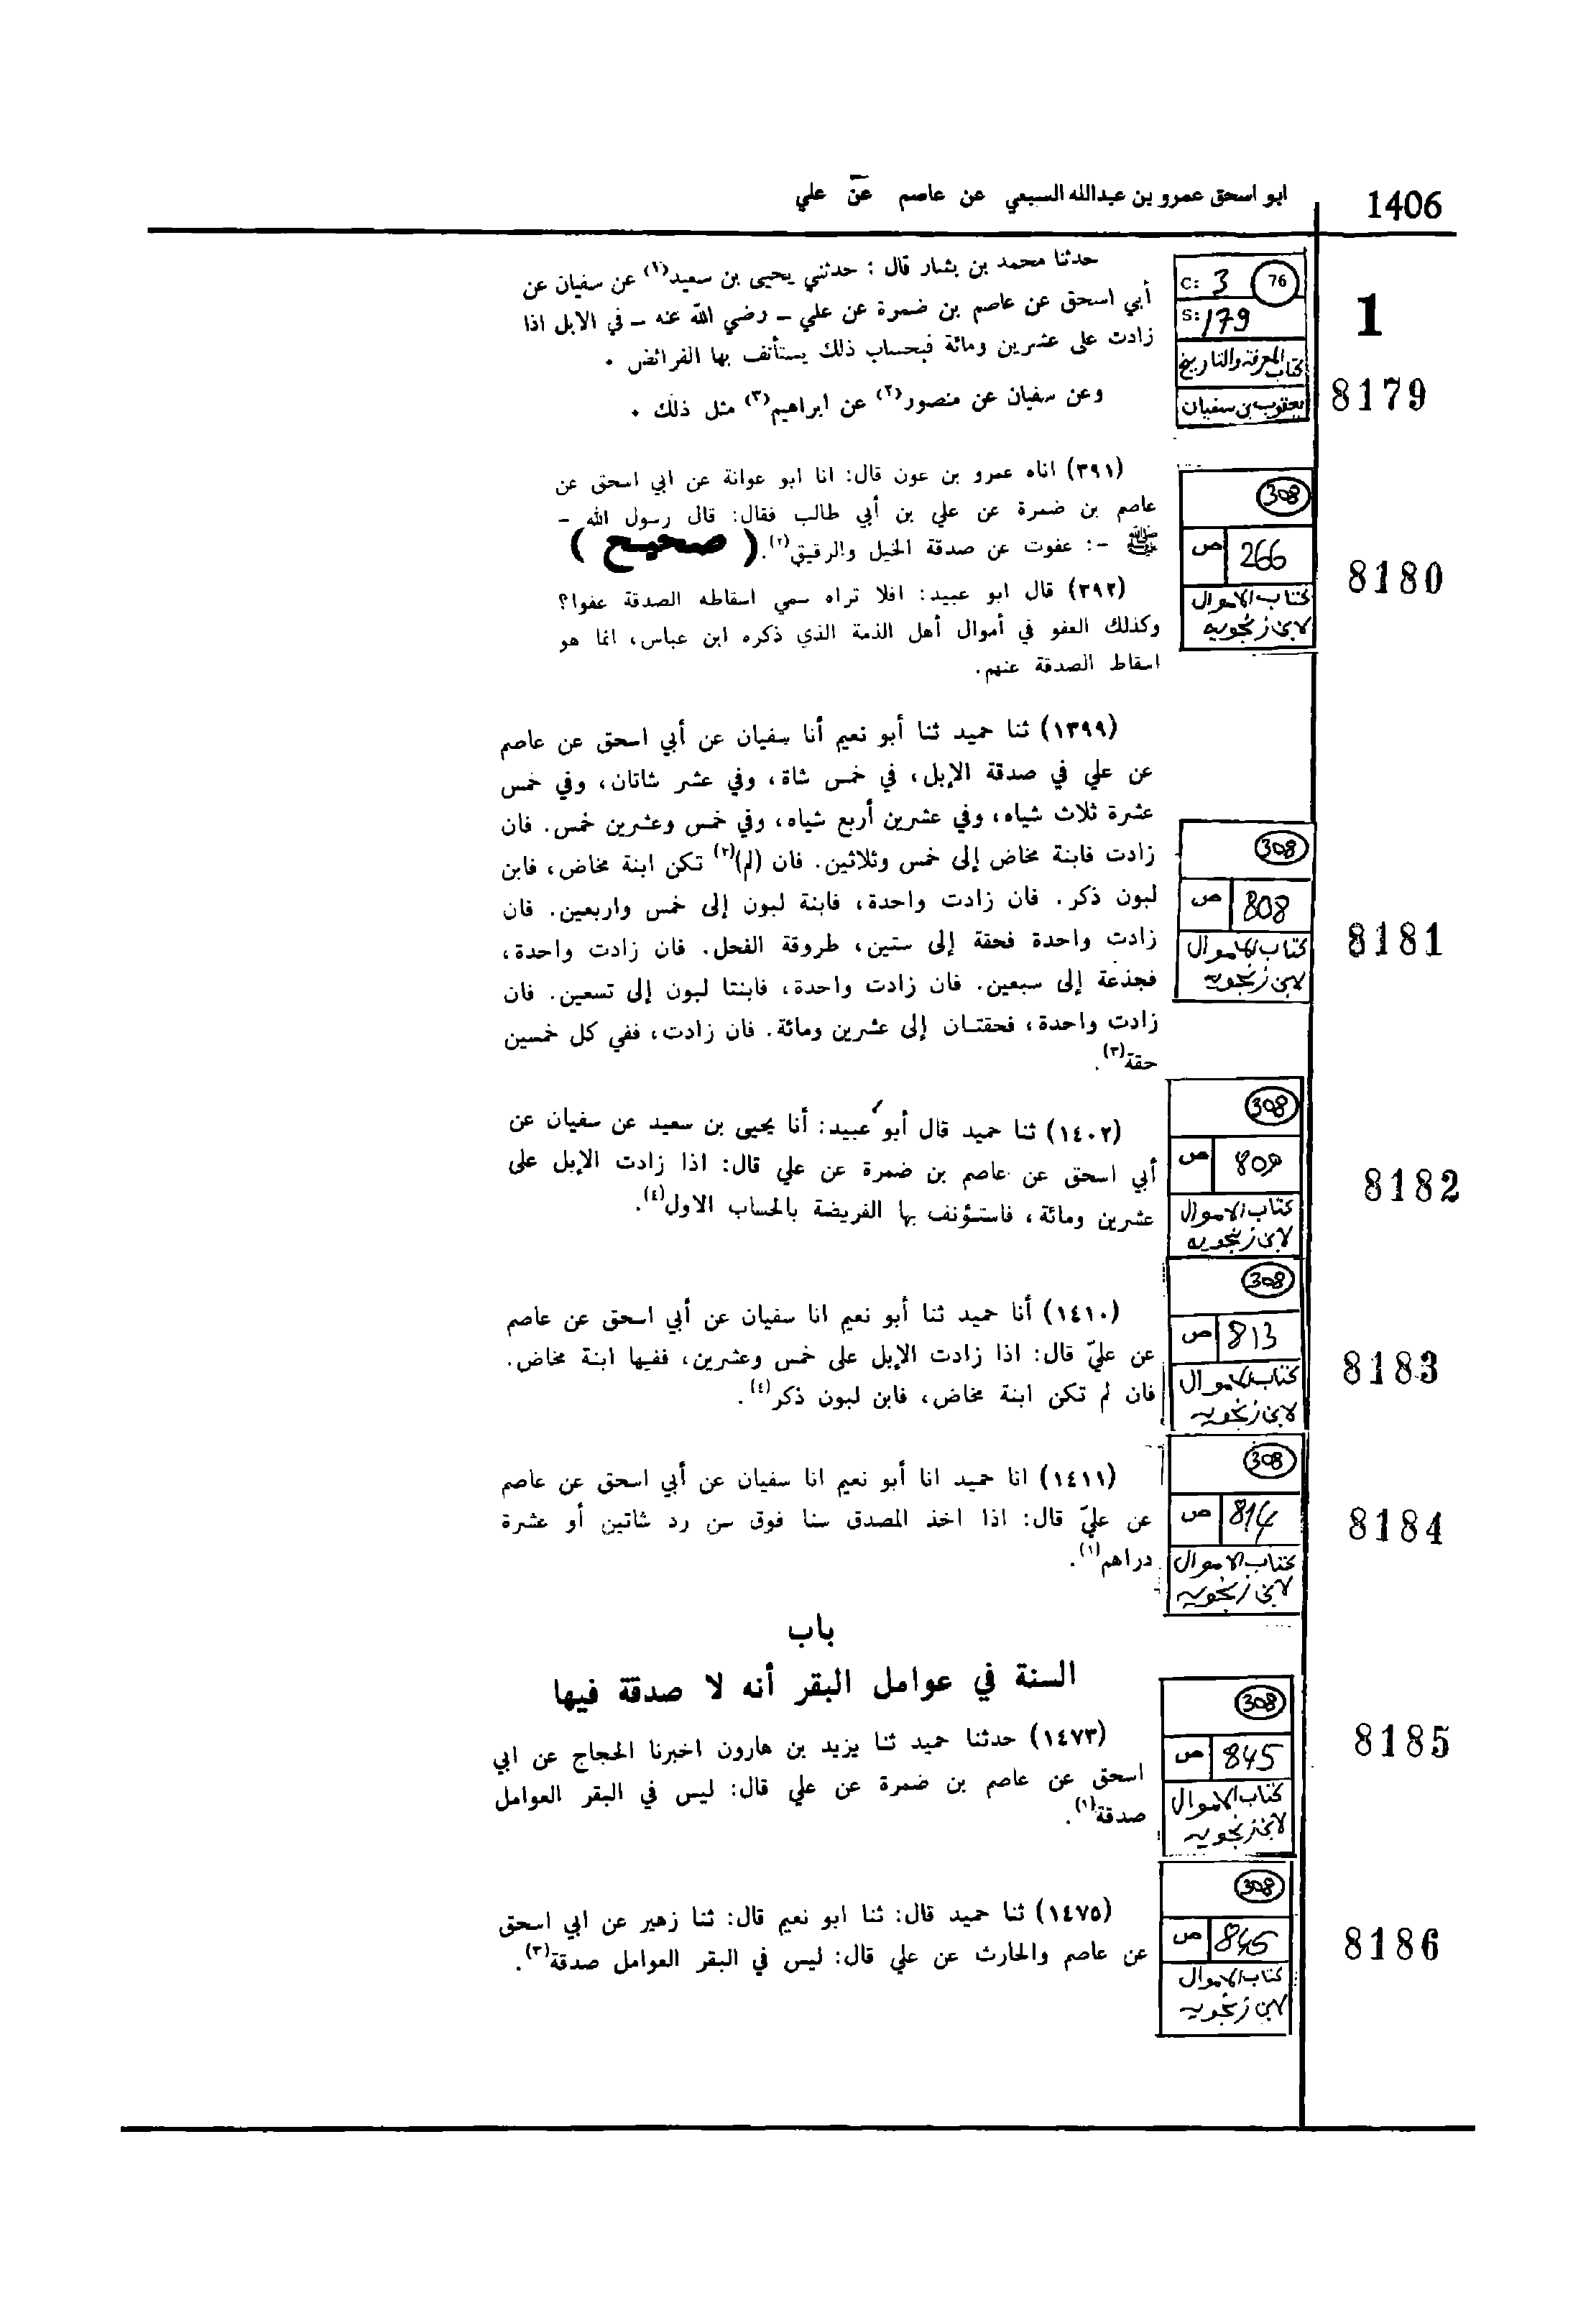 1406
ابو اسحق عمرو بن عبدالله السبيعي عن عاصم عن علي
C: 3 76
S: 179
كتاب المعرفة والتاريخ
يعقوب بن سفيان
1
8179
حدثنا محمد بن بشار قال : حدثني يحيى بن سعيد(١) عن سفيان عن
أبي اسحق عن عاصم بن ضمرة عن علي - رضي الله عنه - في الابل اذا
زادت على عشرين ومائة فبحساب ذلك يستأنف بها الفرائض .
وعن سفيان عن منصور(٢) عن ابراهيم(٣) مثل ذلك .
308
ص 266
كتاب الاموال
لابن زنجويه
8180
(٣٩١) اناه عمرو بن عون قال: انا ابو عوانة عن ابي اسحق عن
عاصم بن ضمرة عن علي بن أبي طالب فقال: قال رسول الله -
ﷺ -: عفوت عن صدقة الخيل والرقيق(٢). ( صحيح )
(٣٩٢) قال ابو عبيد: افلا تراه سمي اسقاطه الصدقة عفوا؟
وكذلك العفو في أموال أهل الذمة الذي ذكره ابن عباس، انما هو
اسقاط الصدقة عنهم.
308
ص 808
كتاب الاموال
لابن زنجويه
8181
(١٣٩٩) ثنا حميد ثنا أبو نعيم أنا سفيان عن أبي اسحق عن عاصم
عن علي في صدقة الإبل، في خمس شاة، وفي عشر شاتان، وفي خمس
عشرة ثلاث شياه، وفي عشرين أربع شياه، وفي خمس وعشرين خمس. فان
زادت فابنة مخاض إلى خمس وثلاثين. فان (لم)(٢) تكن ابنة مخاض، فابن
لبون ذكر. فان زادت واحدة، فابنة لبون إلى خمس واربعين. فان
زادت واحدة فحقة إلى ستين، طروقة الفحل. فان زادت واحدة،
فجذعة إلى سبعين. فان زادت واحدة، فابنتا لبون إلى تسعين. فان
زادت واحدة، فحقتان إلى عشرين ومائة. فان زادت، ففي كل خمسين
حقة(٣).
308
ص 809
كتاب الاموال
لابن زنجويه
8182
(١٤٠٢) ثنا حميد قال أبو عبيد: أنا يحيى بن سعيد عن سفيان عن
أبي اسحق عن عاصم بن ضمرة عن علي قال: اذا زادت الإبل على
عشرين ومائة، فاستؤنف بها الفريضة بالحساب الاول(٤).
308
ص 813
كتاب الاموال
لابن زنجويه
8183
(١٤١٠) أنا حميد ثنا أبو نعيم انا سفيان عن أبي اسحق عن عاصم
عن عليّ قال: اذا زادت الإبل على خمس وعشرين، ففيها ابنة مخاض.
فان لم تكن ابنة مخاض، فابن لبون ذكر(٤).
308
ص 814
كتاب الاموال
لابن زنجويه
8184
(١٤١١) انا حميد انا أبو نعيم انا سفيان عن أبي اسحق عن عاصم
عن عليّ قال: اذا اخذ المصدق سنا فوق سن رد شاتين أو عشرة
دراهم(١).
باب
السنة في عوامل البقر أنه لا صدقة فيها
308
ص 845
كتاب الاموال
لابن زنجويه
8185
(١٤٧٣) حدثنا حميد ثنا يزيد بن هارون اخبرنا الحجاج عن ابي
اسحق عن عاصم بن ضمرة عن علي قال: ليس في البقر العوامل
صدقة(١).
308
ص 845
كتاب الاموال
لابن زنجويه
8186
(١٤٧٥) ثنا حميد قال: ثنا ابو نعيم قال: ثنا زهير عن ابي اسحق
عن عاصم والحارث عن علي قال: ليس في البقر العوامل صدقة(٣).